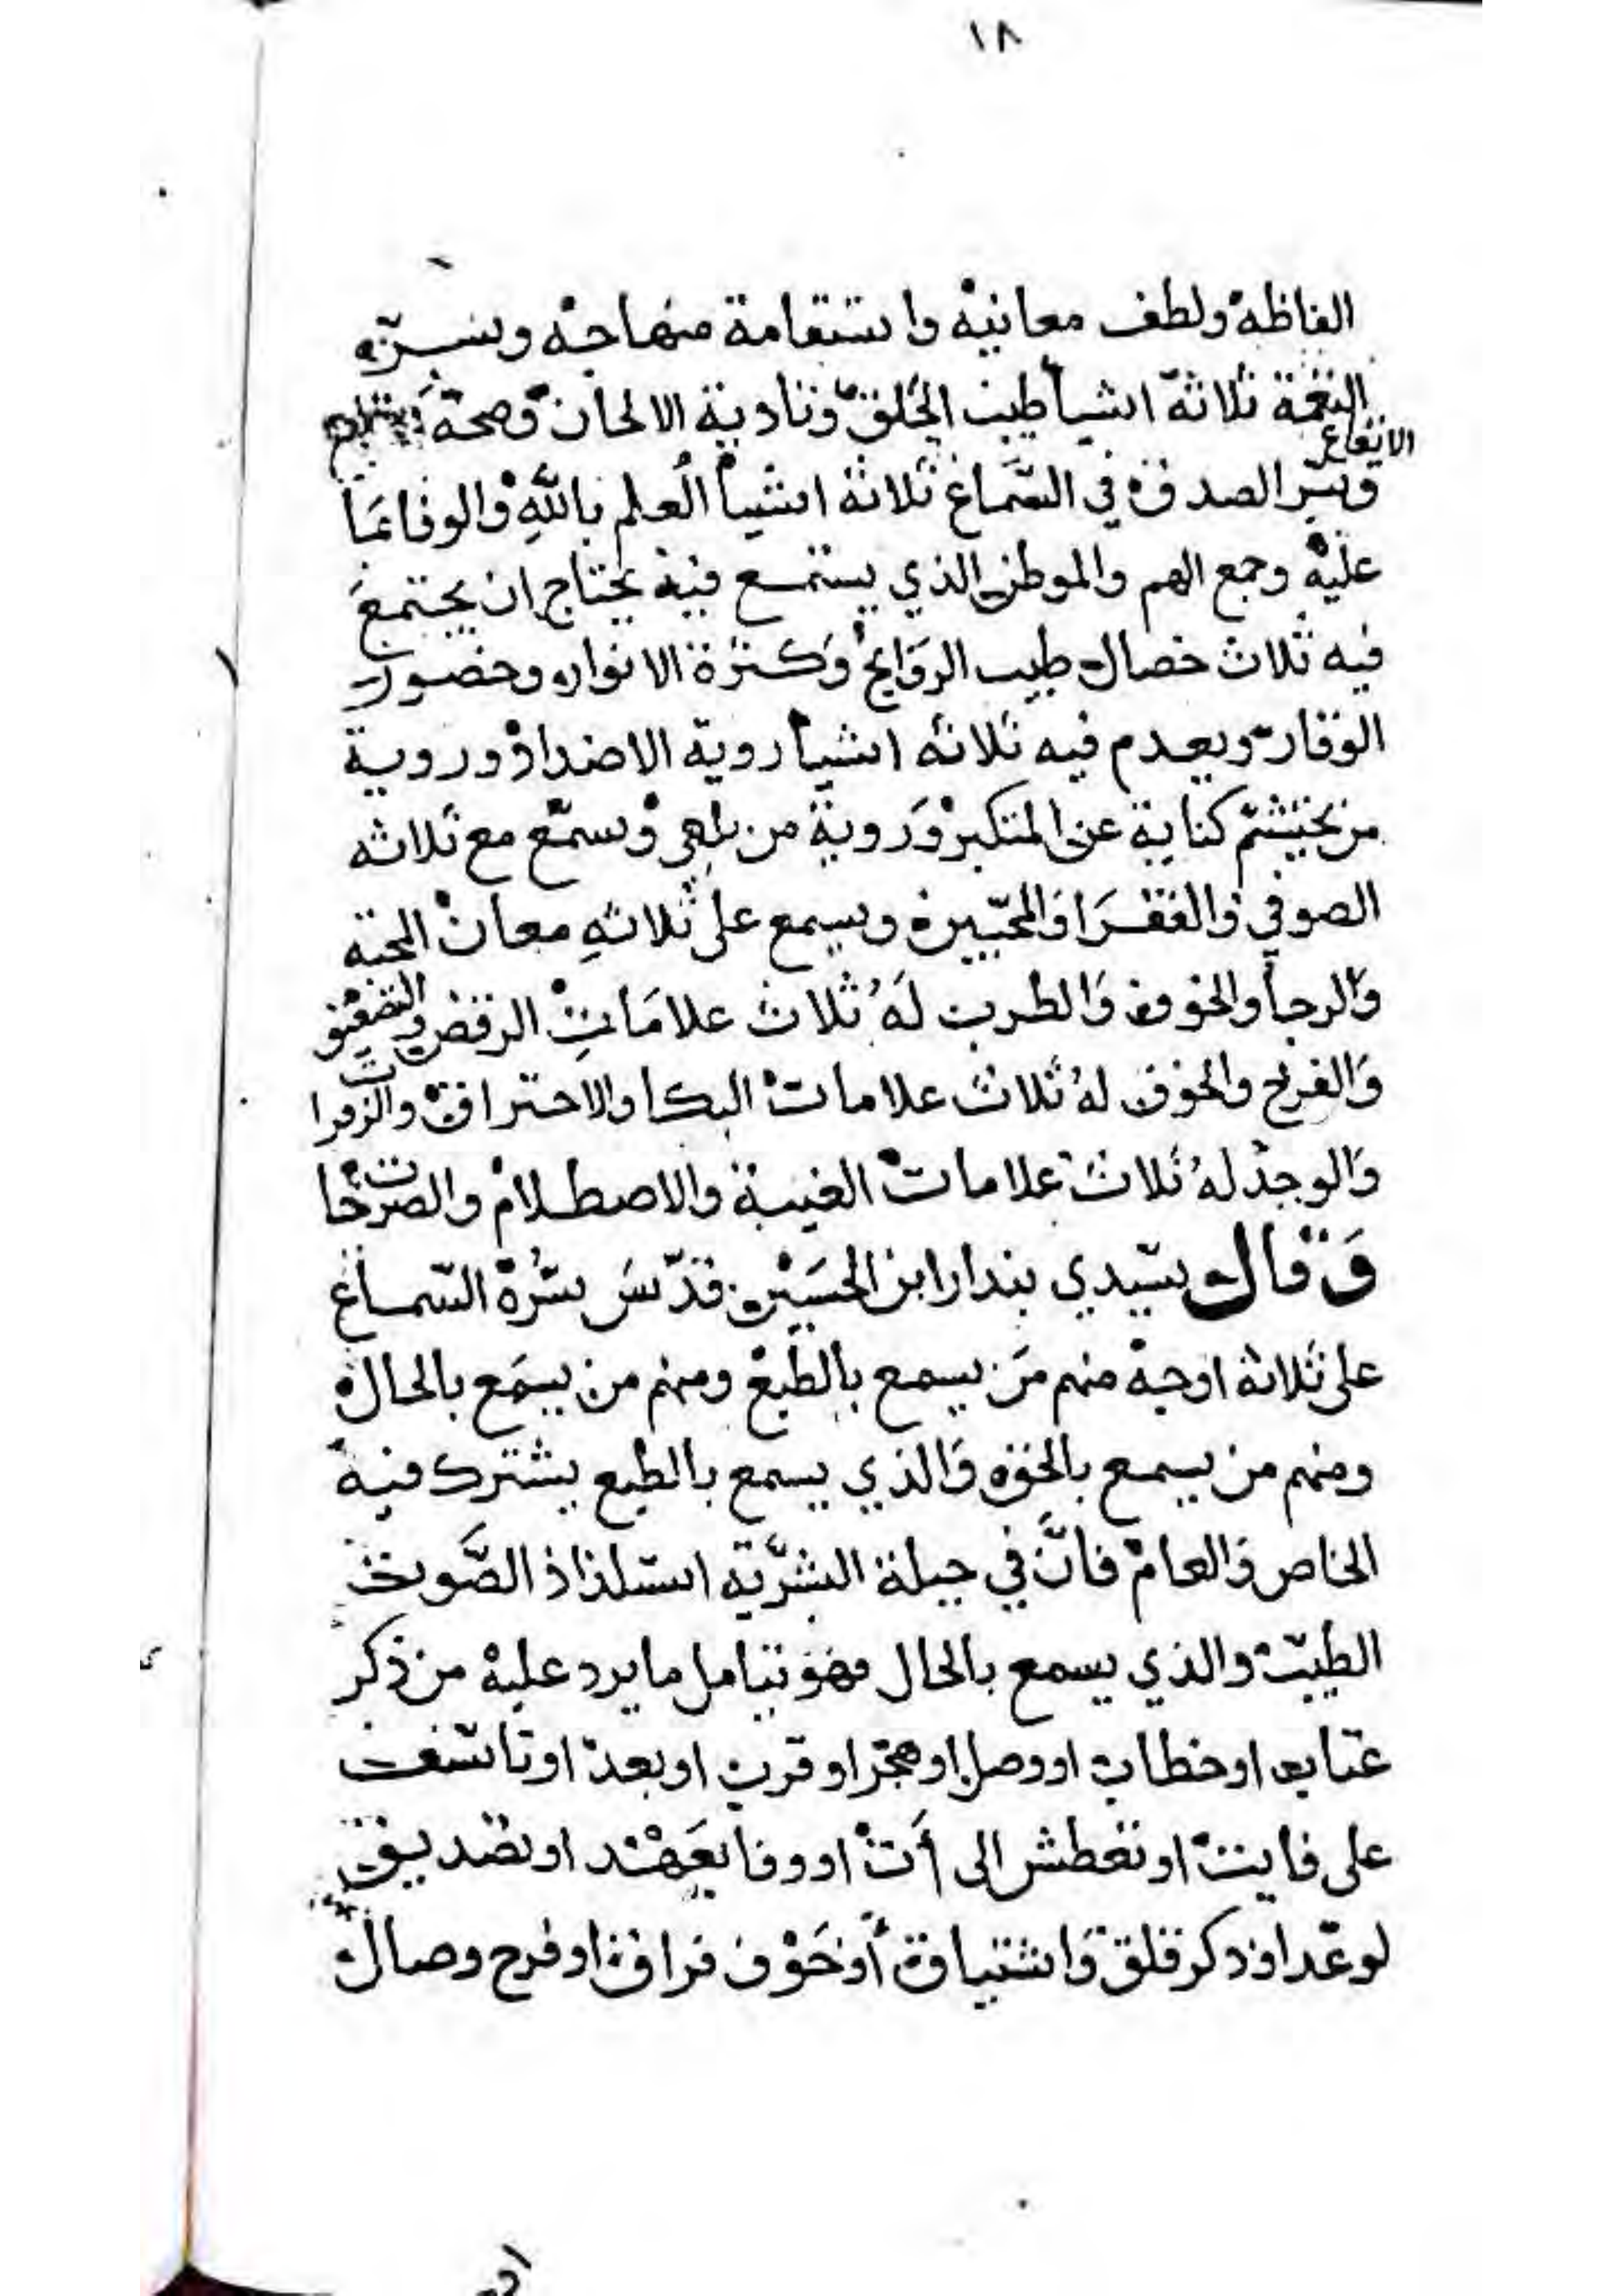 ١٨
الفاظه ولطف معانيه واستقامة منهاجه وسر
النغمة ثلاثة اشيا طيب الخلق وتادية الالحان وصحة
الايقاع
وسر الصدق في السماع ثلاثة اشيا العلم بالله والوفا بما
عليه وجمع الهم والموطن الذي يستمع فيه يحتاج ان يجتمع
فيه ثلاث خصال طيب الروايح وكثرة الانوار وحضور
الوقار ويعدم فيه ثلاثة اشيا روية الاضداد وروية
من يحتشم كناية عن المتكبر وروية من يلهي وسمع مع ثلاثه
الصوفي والفقرا والمحبين ويسمع على ثلاثه معان المحبه
والرجا والخوف والطرب له ثلاث علامات الرقص والتصفيق
والفرح والخوف له ثلاث علامات البكا والاحتراق والزفرات
والوجد له ثلاث علامات الغيبة والاصطلام والصرخات
وقال سيدي بندار ابن الحسين قدس سره السماع
على ثلاثة اوجه منهم من يسمع بالطبع ومنهم من يسمع بالحال
ومنهم من يسمع بالحق والذي يسمع بالطبع يشترك فيه
الخاص والعام فان في جبلة البشرية استلذاذ الصوت
الطيب والذي يسمع بالحال فهو يتامل ما يرد عليه من ذكر
عتاب او خطاب او وصل او هجر او قرب او بعد او تاسف
على فايت او تعطش الى آت او وفا بعهد او تصديق
لوعد او ذكر قلق واشتياق أو خوف فراق او فرح وصال